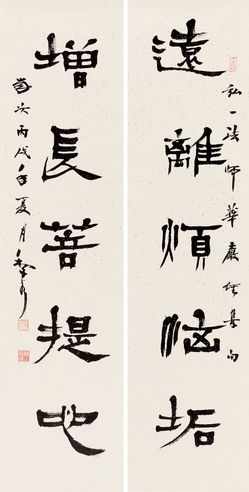 遠離煩惱垢
弘一法師華嚴經集句
增長菩提心
歲次丙戌年夏月